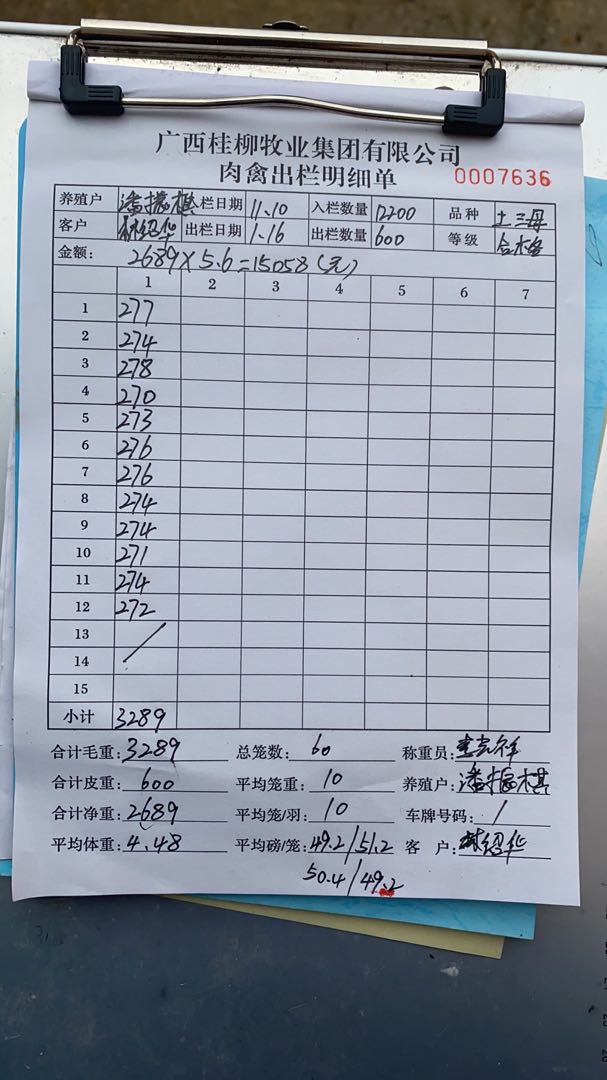 广西桂柳牧业集团有限公司
肉禽出栏明细单 0007636
养殖户 潘振棋 入栏日期 11.10 入栏数量 12200 品种 土三母
客户 林绍华 出栏日期 1.16 出栏数量 600 等级 合格
金额: 2689×5.6=15058(元)
1 2 3 4 5 6 7
1 277
2 274
3 278
4 270
5 273
6 276
7 276
8 274
9 274
10 271
11 274
12 272
13 /
14
15
小计 3289
合计毛重: 3289 总笼数: 60 称重员:
合计皮重: 600 平均笼重: 10 养殖户: 潘振棋
合计净重: 2689 平均笼/羽: 10 车牌号码: /
平均体重: 4.48 平均磅/笼: 49.2/51.2 客 户: 林绍华
50.4/49.2